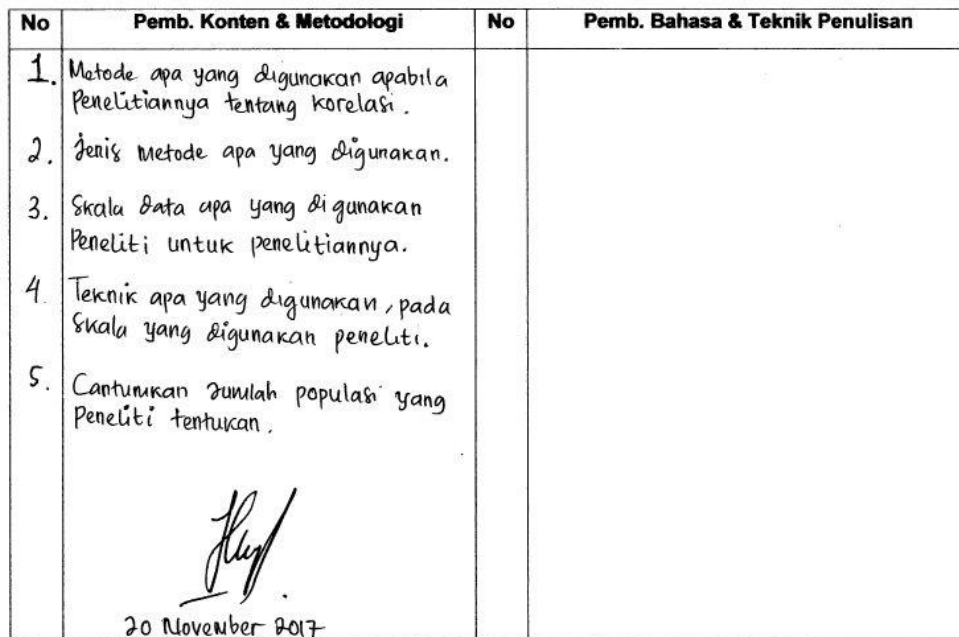 No Pemb. Konten & Metodologi No Pemb. Bahasa & Teknik Penulisan
1. Metode apa yang digunakan apabila
Penelitiannya tentang korelasi.
2. Jenis metode apa yang digunakan.
3. Skala data apa yang digunakan
Peneliti untuk penelitiannya.
4. Teknik apa yang digunakan, pada
Skala yang digunakan peneliti.
5. Cantumkan Jumlah populasi yang
Peneliti tentukan.
20 November 2017